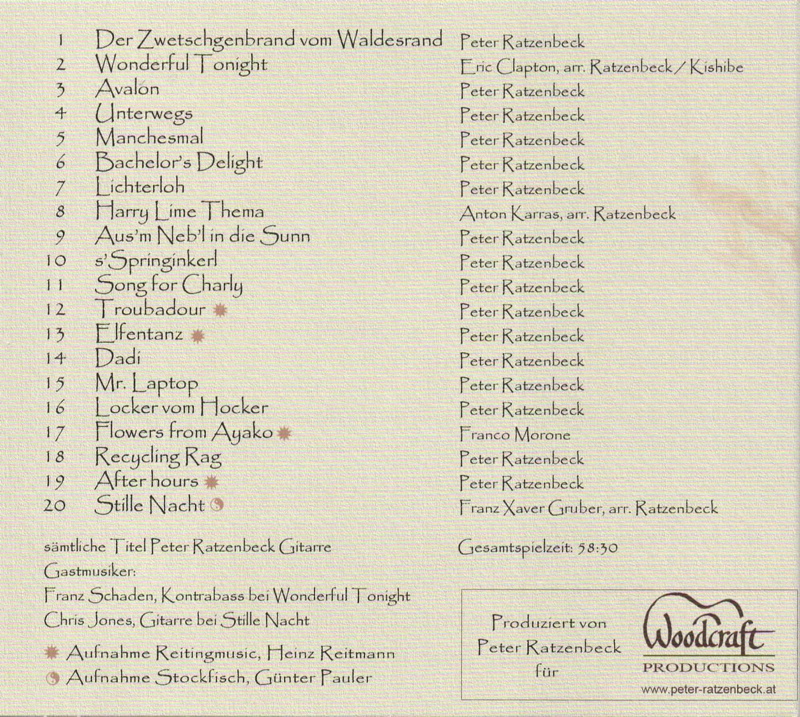 1 Der Zwetschgenbrand vom Waldesrand Peter Ratzenbeck
2 Wonderful Tonight Eric Clapton, arr. Ratzenbeck / Kishibe
3 Avalon Peter Ratzenbeck
4 Unterwegs Peter Ratzenbeck
5 Manchesmal Peter Ratzenbeck
6 Bachelor's Delight Peter Ratzenbeck
7 Lichterloh Peter Ratzenbeck
8 Harry Lime Thema Anton Karras, arr. Ratzenbeck
9 Aus'm Neb'l in die Sunn Peter Ratzenbeck
10 s'Springinkerl Peter Ratzenbeck
11 Song for Charly Peter Ratzenbeck
12 Troubadour Peter Ratzenbeck
13 Elfentanz Peter Ratzenbeck
14 Dadi Peter Ratzenbeck
15 Mr. Laptop Peter Ratzenbeck
16 Locker vom Hocker Peter Ratzenbeck
17 Flowers from Ayako Franco Morone
18 Recycling Rag Peter Ratzenbeck
19 After hours Peter Ratzenbeck
20 Stille Nacht Franz Xaver Gruber, arr. Ratzenbeck
sämtliche Titel Peter Ratzenbeck Gitarre
Gastmusiker:
Franz Schaden, Kontrabass bei Wonderful Tonight
Chris Jones, Gitarre bei Stille Nacht
Aufnahme Reitingmusic, Heinz Reitmann
Aufnahme Stockfisch, Günter Pauler
Gesamtspielzeit: 58:30
Produziert von
Peter Ratzenbeck
für
Woodcraft
PRODUCTIONS
www.peter-ratzenbeck.at